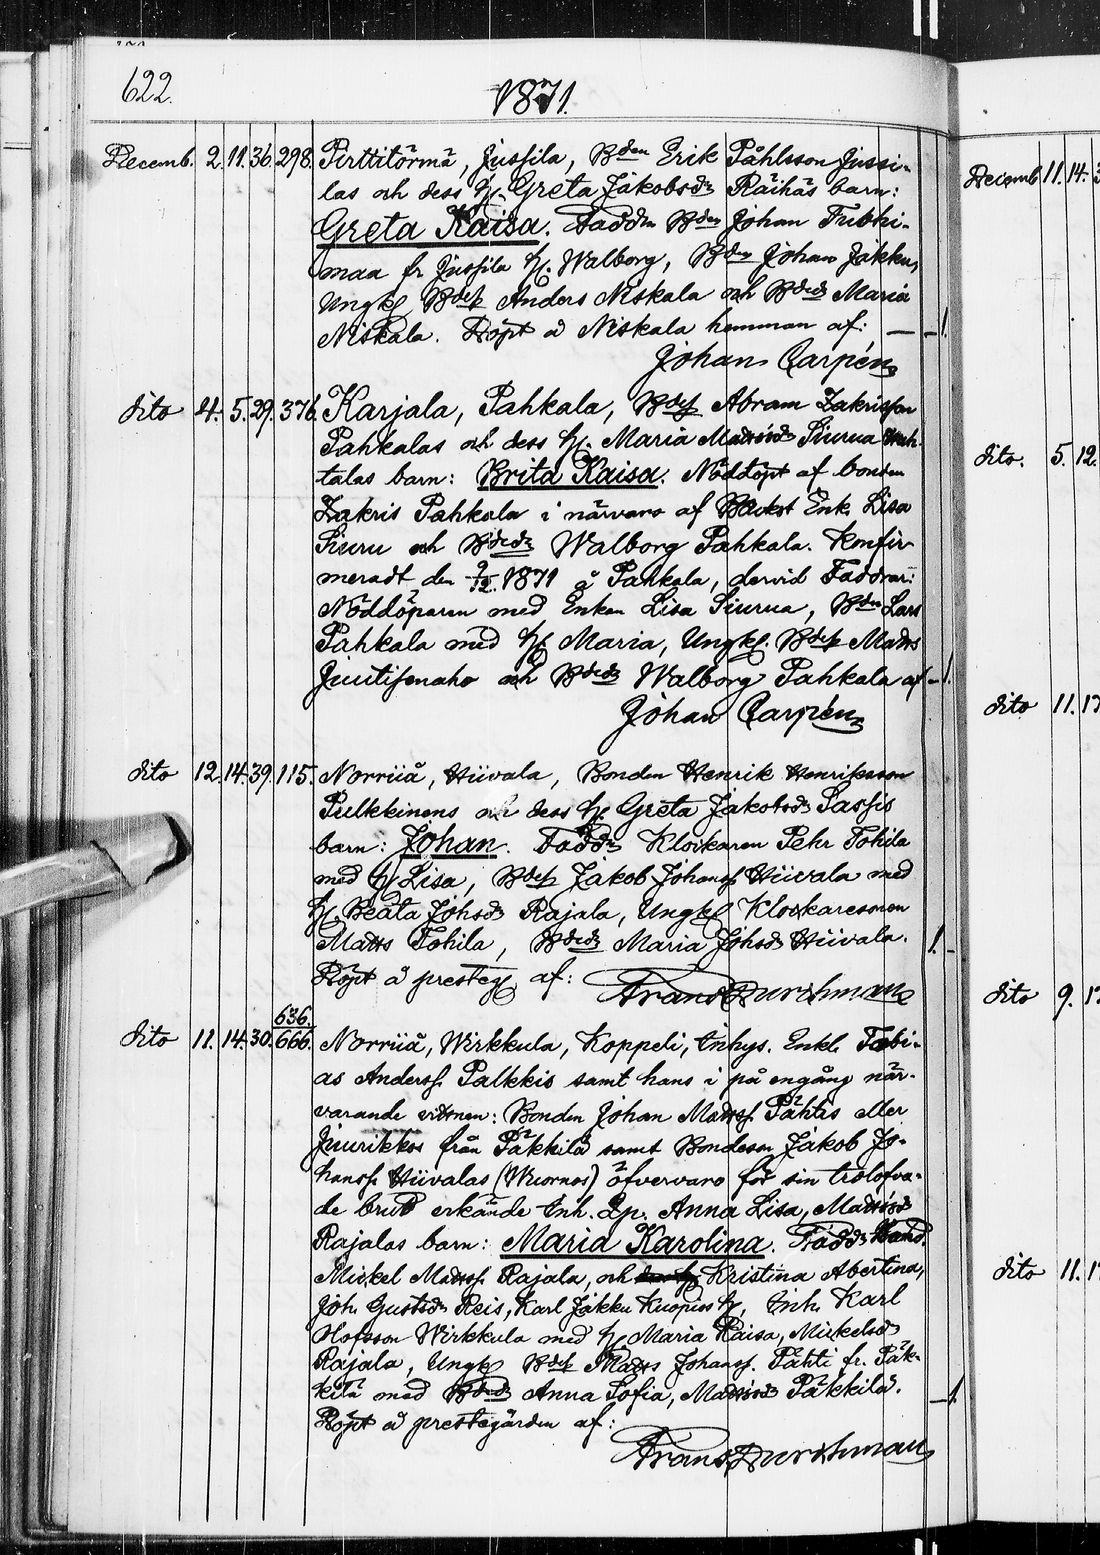 622.
1871.
Decemb. 2. 11. 36. 298. Pirttitörmä, Jussila, Bden Erik Påhlsson Jussi-
las och dess h. Greta Jakobsdr Räihäs barn:
Greta Kaisa. Faddr Bden Johan Tubki-
maa fr Jussila h. Walborg, Bden Johan Jäkku,
Ungk Bdes Anders Niskala och Bdedr Maria
Niskala. Döpt å Niskala hemman af: — 1.
Johan Carpén
dito 4. 5. 29. 376. Karjala, Pahkala, Bdes Abram Zakrisson
Pahkalas och dess h. Maria Mattsdr Siurua
talas barn: Brita Kaisa. Nöddöpt af bonden
Zakris Pahkala i närvaro af Enk. Lisa
Siuru och Bdedr Walborg Pahkala. Konfir-
meradt den 9/12. 1871 å Pahkala, dervid Faddrar:
Nöddöparen med Enkan Lisa Siurua, Bden Lars
Pahkala med h. Maria, Ungk. Bdes Matts
Juutisenaho och Bdedr Walborg Pahkala af - 1.
Johan Carpén
dito 12. 14. 39. 115. Norriiå, Hiivala, Bonden Henrik Henriksson
Pulkkinens och dess h. Greta Jakobsdr Sassis
barn: Johan. Faddr Klockaren Pehr Tohila
med h Lisa, Bdes Jakob Johanss Hiivala med
h. Beata Johsdr Rajala, Ungk Klockaresonen
Matts Tohila, Bdedr Maria Johsdr Hiivala. 1. -
Döpt å presteg. af: Frans Durchman
636.
dito 11. 14. 30. 666. Norriiå, Wirkkula, Koppeli, Inhys. Enkl. Tobi-
as Anderss. Palkkis samt hans i på engång när-
varande vittnen: Bonden Johan Mattss. Pähtis eller
Juurikkas från Päkkilä samt Bondeson Jakob Jo-
hanss. Hiivalas (Wuornos) öfvervaro för sin trolofva-
de brud erkände Inh. Qp. Anna Lisa, Mattsdr
Rajalas barn: Maria Karolina. Faddr
Mickel Mattss. Rajala, och Kristina Abertina,
Joh. Gustsdr Reis, Karl Jäkku Kuopus h, Inh. Karl
Olofsson Wirkkula med h Maria Kaisa, Mickelsdr
Rajala, Ungk Bdes Matts Johanss. Pähti fr. Päk-
kilä med Bdedr Anna Sofia, Mattsdr Päkkilä.
Döpt å prestegården af: — 1
Frans Durchman
Decemb. 11. 14.
dito. 5. 12.
dito 11.
dito 9.
dito 11.